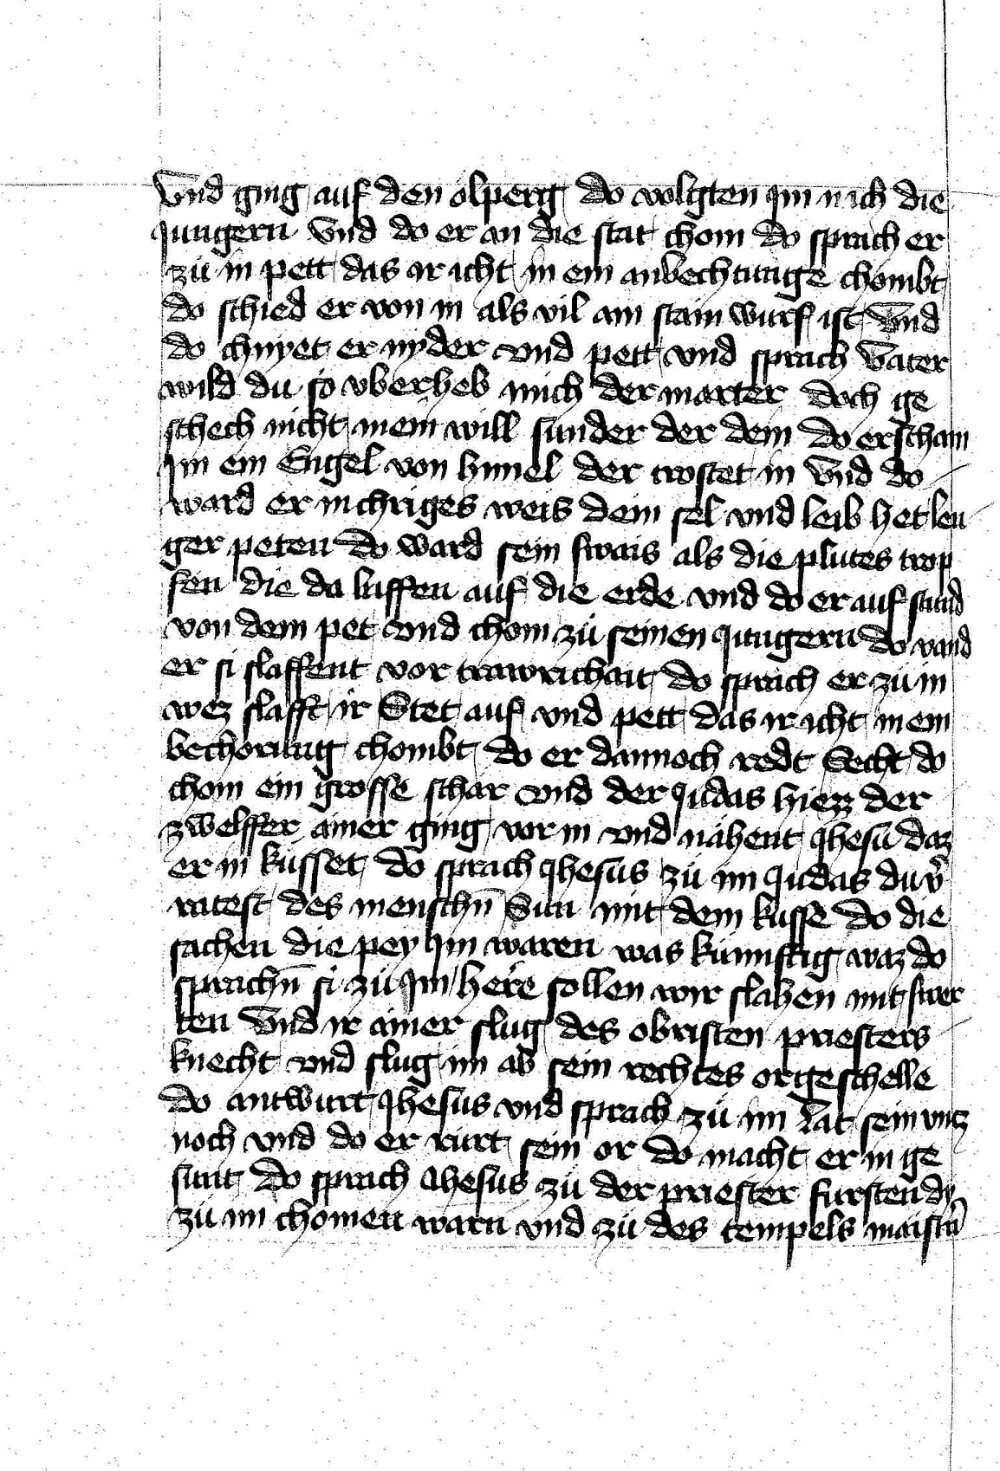 Vnd ging auf den ölperg do volgten Im nach die
Jungern Vnd do er an die stat chom do sprach er
zů in pett das ir icht in ein anbechtunge chömbt
do schied er von in als vil ain stain wurf ist Vnd
do chnyet er nyder vnd pett vnd sprach Vater
wild du so vberheb mich der marter doch ge
schech nicht mein will sunder der dein do erschain
Im ein Engel von himel der trostet in Vnd do
ward er in chriges weis dein sel vnd leib het len
ger peten Do ward sein swais als die plutes trop
fen die da luffen auf die erde vnd do er auf stund
von dem pet vnd chom zů seinen Jungern do vand
er si slaffent vor trawrichait do sprach er zů in
wez slafft ir Stet auf vnd pett das ir icht in ein
bechorung chömbt do er dannoch redt Secht do
chom ein grosse schar vnd der Judas hiezz der
zwelffer ainer ging vor in vnd nähent Jhesu daz
er in küsset do sprach Jhesus zů im Judas du v̄
ratest des menschn̄ Sun mit dem kusse do die
sachen die pey Im waren was künnftig waz do
sprachn̄ si zů Im here sollen wir slahen mit swer
ten Vnd ir ainer slug des obristen priesters
knecht vnd slug im ab sein rechtes orgeschelle
do antwurt Jhesus vnd sprach zů im Lat sein vntz
noch vnd do er rurt sein or do macht er in ge
sunt do sprach Jhesus zů der priester fursten dy
zů im chomen warn vnd zů des tempels maistn̄